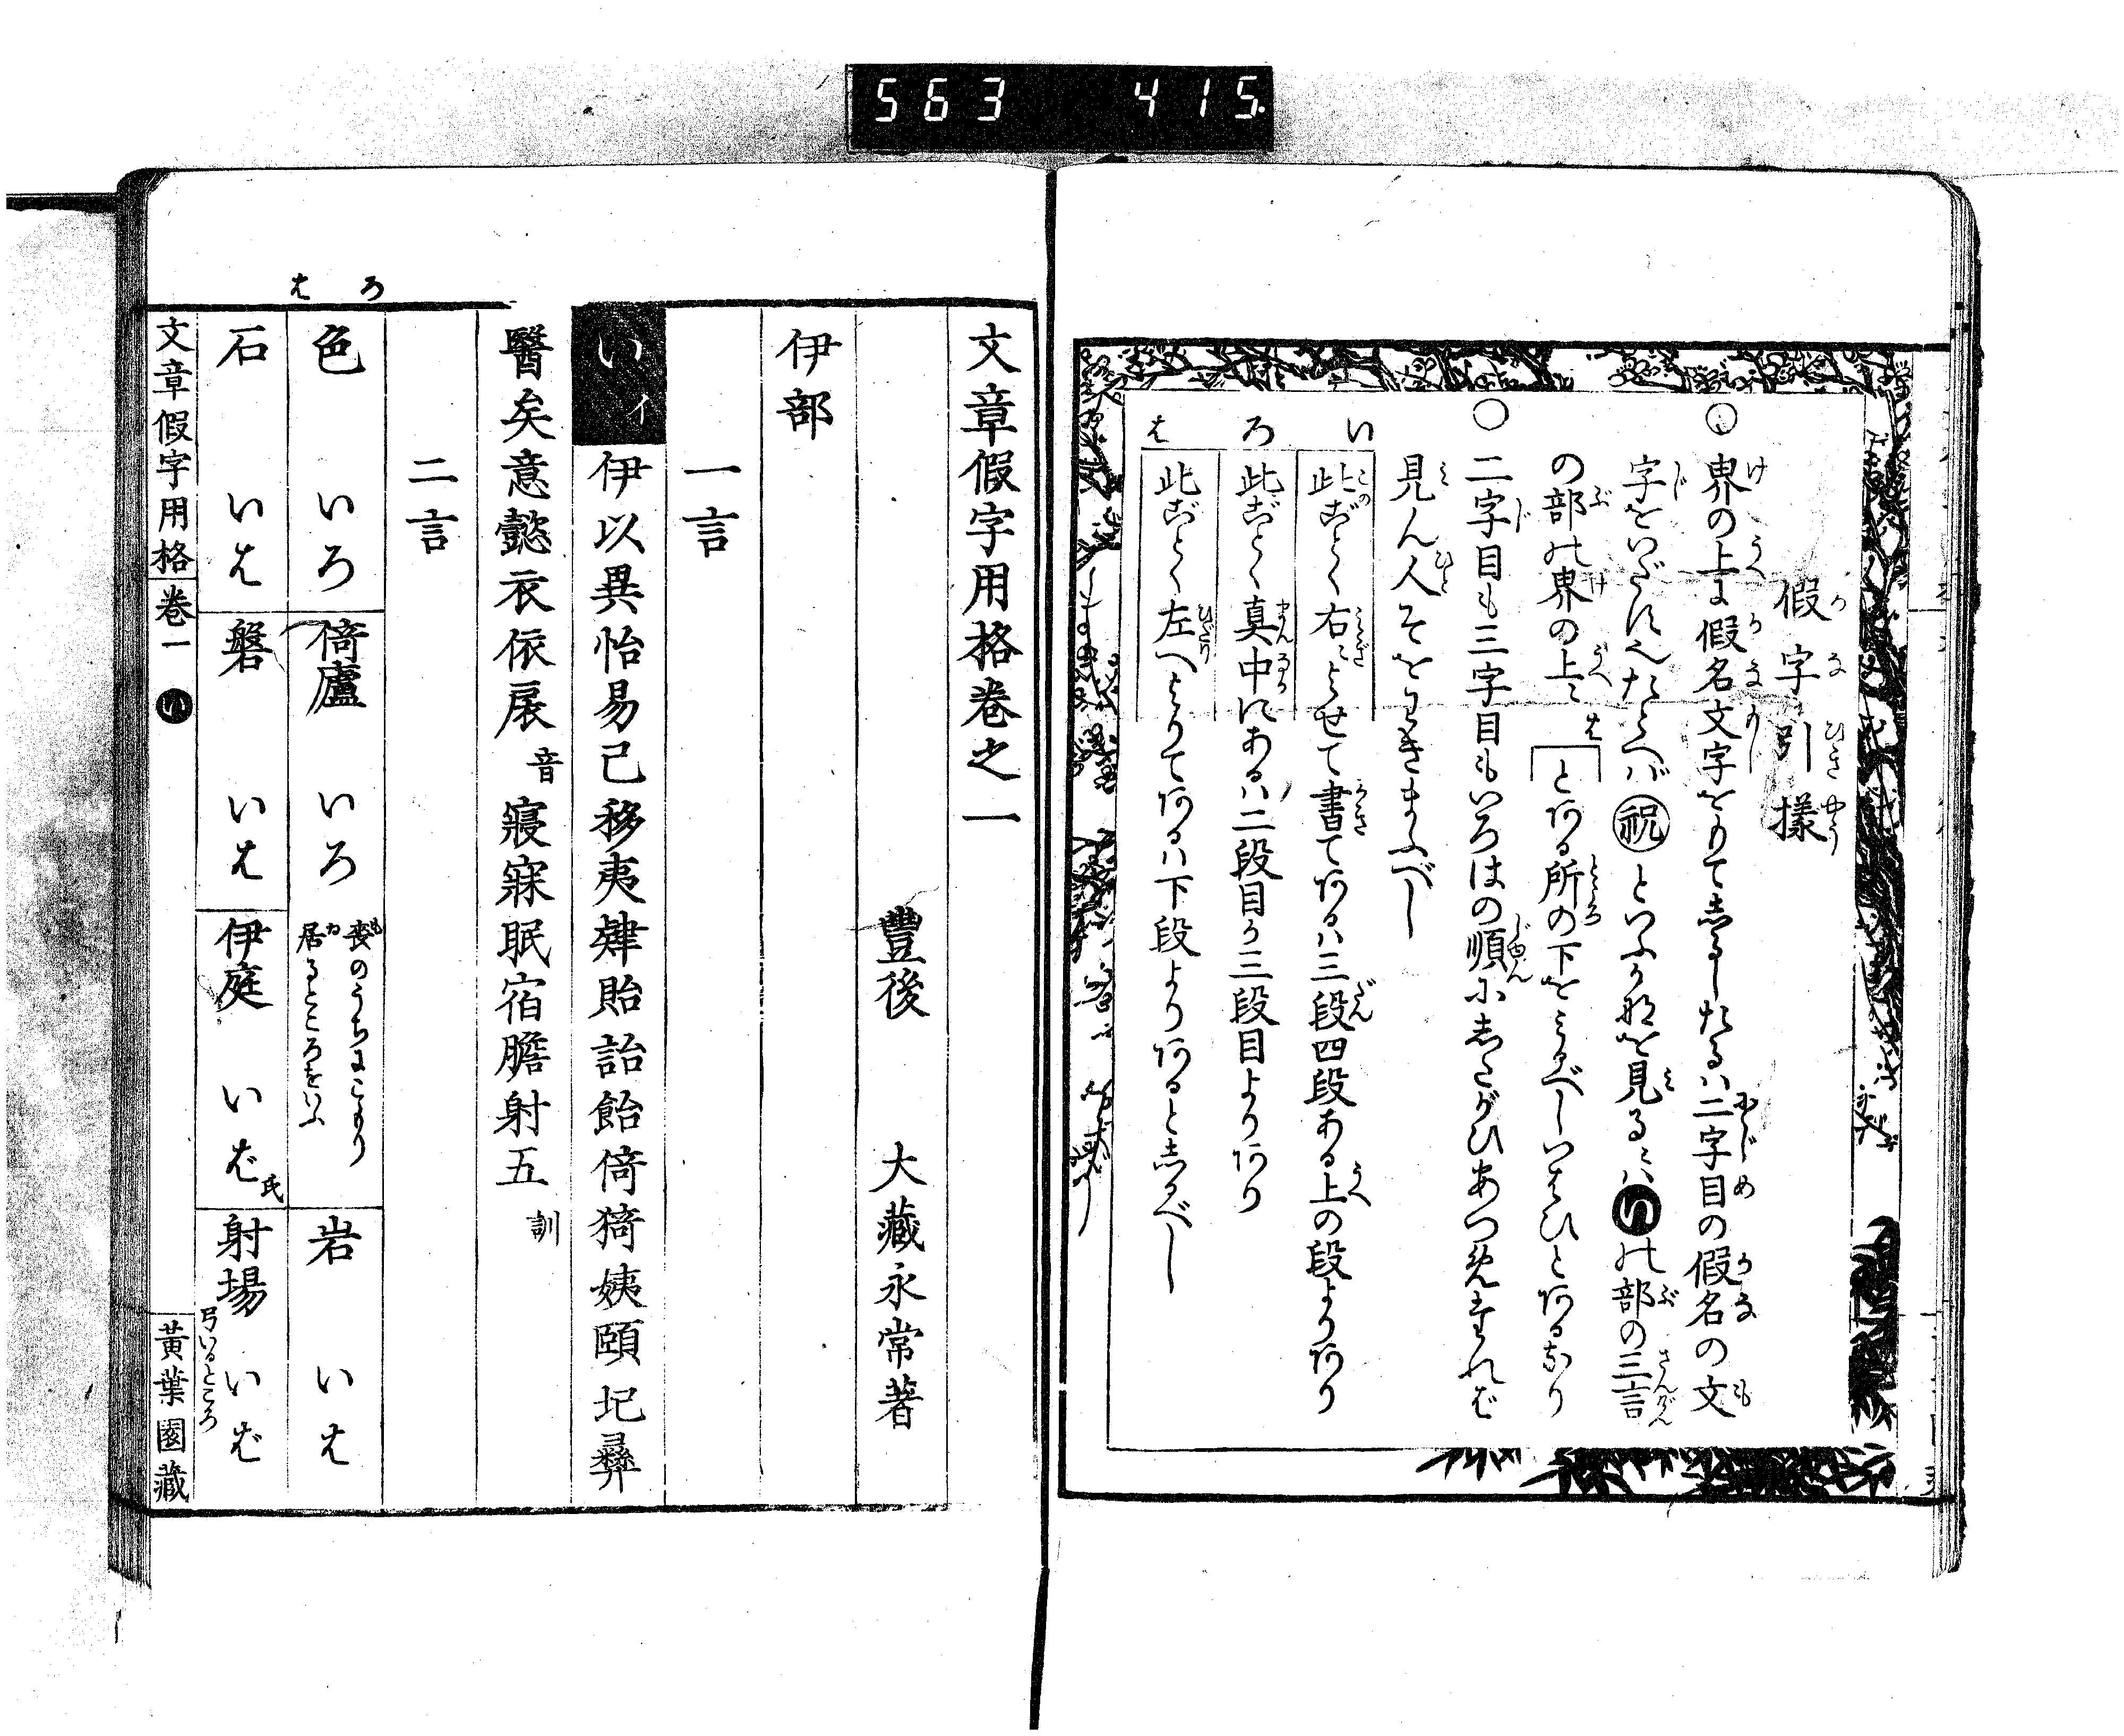 563 415
假字引樣
○界の上に假名文字をもて志るしたるハ二字目の假名の文
字をいだせんたとへバ祝といふかなを見るにハいの部の三言
の部の界の上にはとある所の下をみるべしいはひとあるなり
○二字目も三字目もいろはの順に志たがひあつめたれば
見ん人そをわきまふべし
い 此ごとく右によせて書てあるハ三段四段ある上の段よりあり
ろ 此ごとく真中にあるハ二段目か三段目よりあり
は 此ごとく左へよりてあるハ下段よりあると志るべし
文章假字用格卷之一
豐後 大藏永常著
伊部
一言
いイ 伊以異怡易已移夷肄貽詒飴倚猗姨頤圯彝
醫矣意懿衣依扆音寢寐眠宿膽射五訓
二言
ろ は
色 いろ 倚廬 いろ 喪のうちにこもり居るところをいふ 岩 いは
石 いは 磐 いは 伊庭 いば氏 射場 いば 弓いるところ
文章假字用格 卷一 い 黃葉園藏